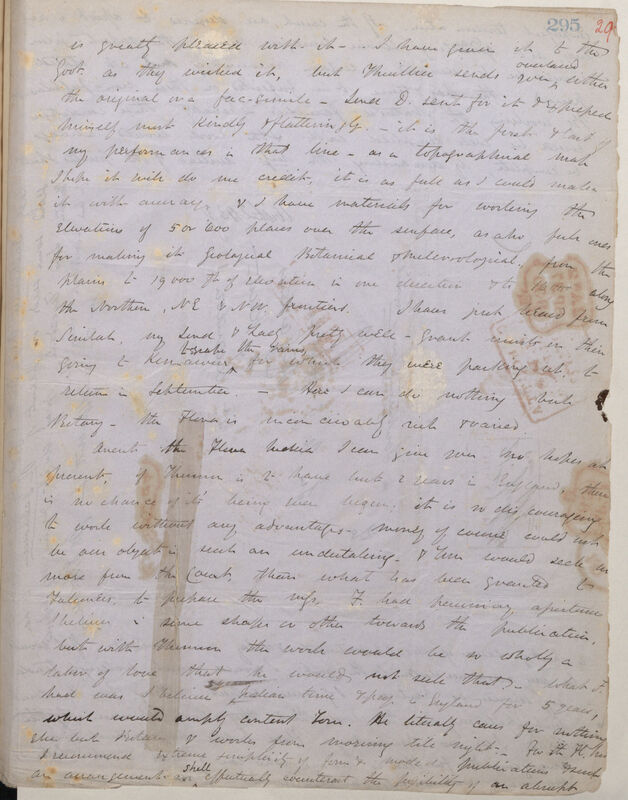 295 29
is greatly pleased with it - I have given it to the
Govt. as they wished it, but Thuillier sends you overland either
the original or a fac-simile - Lord D. sent for it &
himself most kindly & flatteringly - it is the first & last of
my performances in that line - as a topographical map
I hope it will do me credit, it is as full as I could make
it with accuracy, & I have materials for working the
Elevations of 5 or 600 places over the surface, as also
for making it Geological Botanical & meteorological, from the
plains to 19,000 ft of elevation in one direction & to along
the Northern, NE & NW frontiers. I have just heard from
Simlah, my Lord & Lady pretty well - Grant insists on their
going to Kunawur to escape the rains, for which they were packing up, to
return in September. - Here I can do nothing but
Botany - the Flora is inconceivably rich & varied
Anent the Flora Indica I can give you no hopes at
present, if Thomson is to have but 2 years in England, there
is no chance of its being ever begun, it is so discouraging
to work without any advantage - money of course could not
be our object in such an undertaking - & Tom would seek no
more from the Court than what has been granted to
Falconer, to prepare the F. had pecuniary
I believe in some shape or other towards the publication,
but with Thomson the work would be so wholly a
labor of love that he would not seek that. - What F.
had was I believe Indian time & pay in England for 5 years,
which would amply content Tom. He literally cares for nothing
else but Botany & works from morning till night - For
I recommend extreme simplicity of form & mode of publication & such
an arrangement as shall effectually counteract the possibility of an abrupt